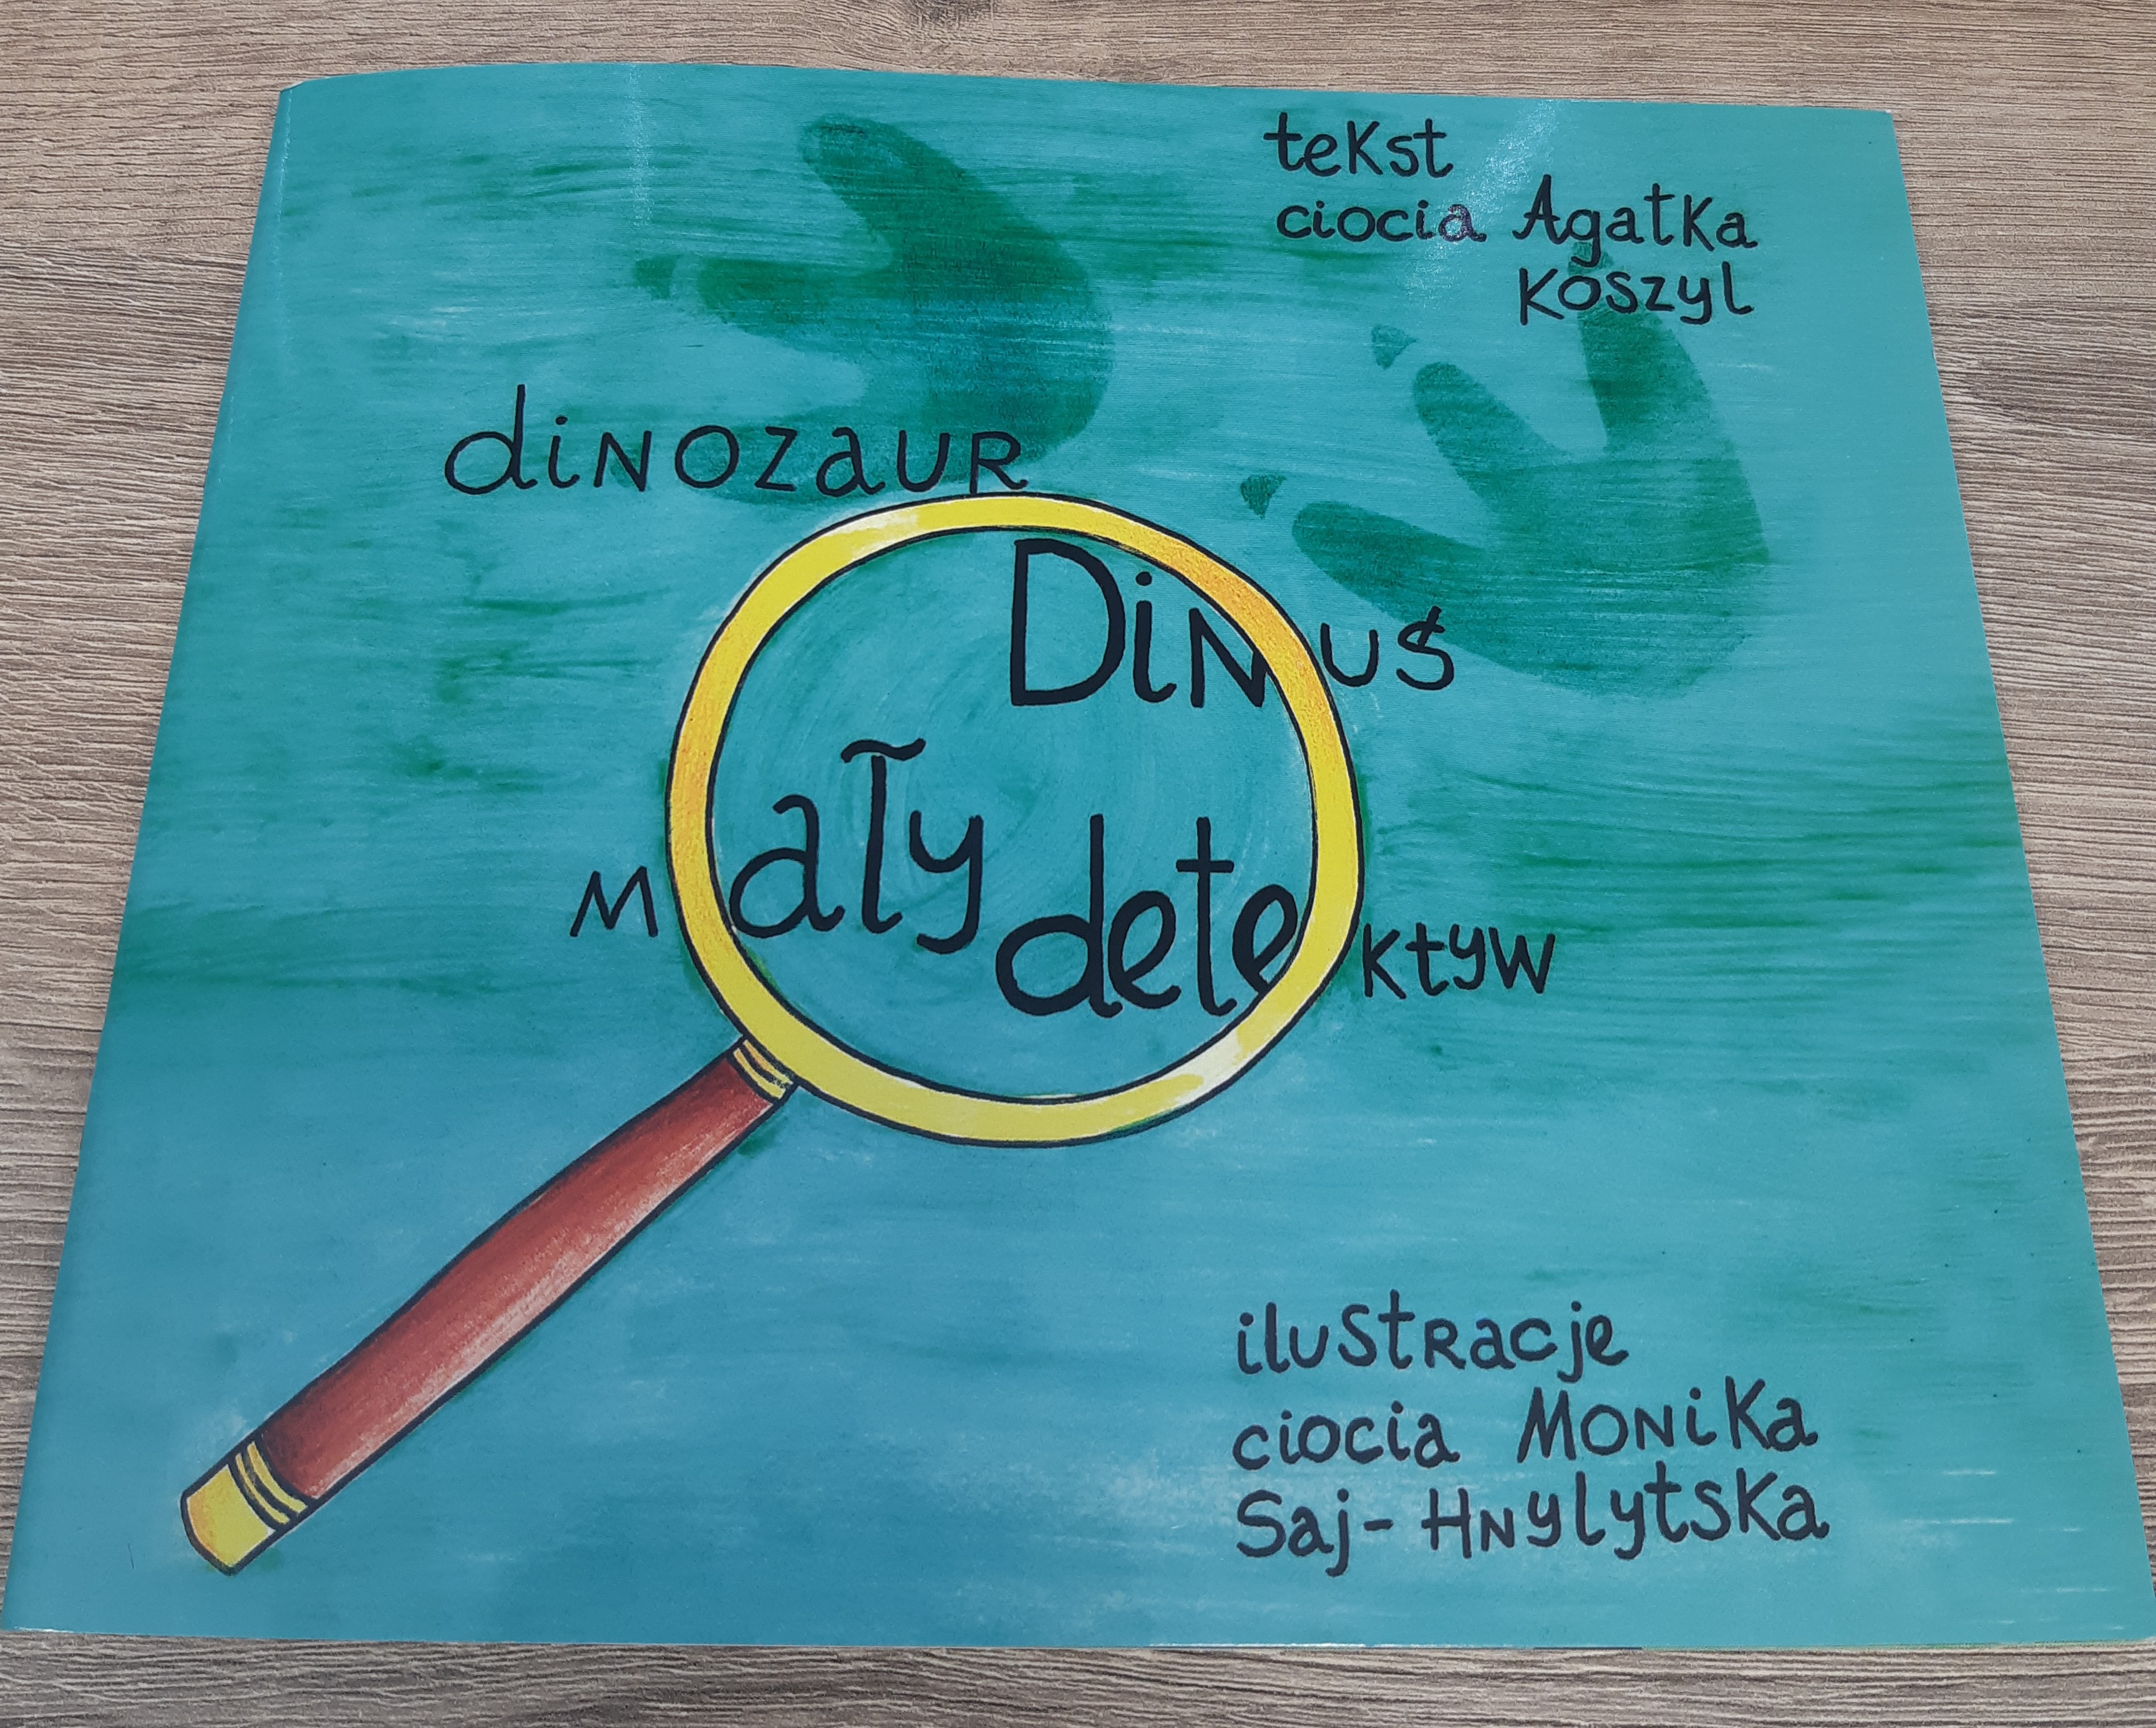 tekst
ciocia Agatka
Koszyl
dinozaur
Dinuś
mały detektyw
ilustracje
ciocia Monika
Saj-Hnylytska